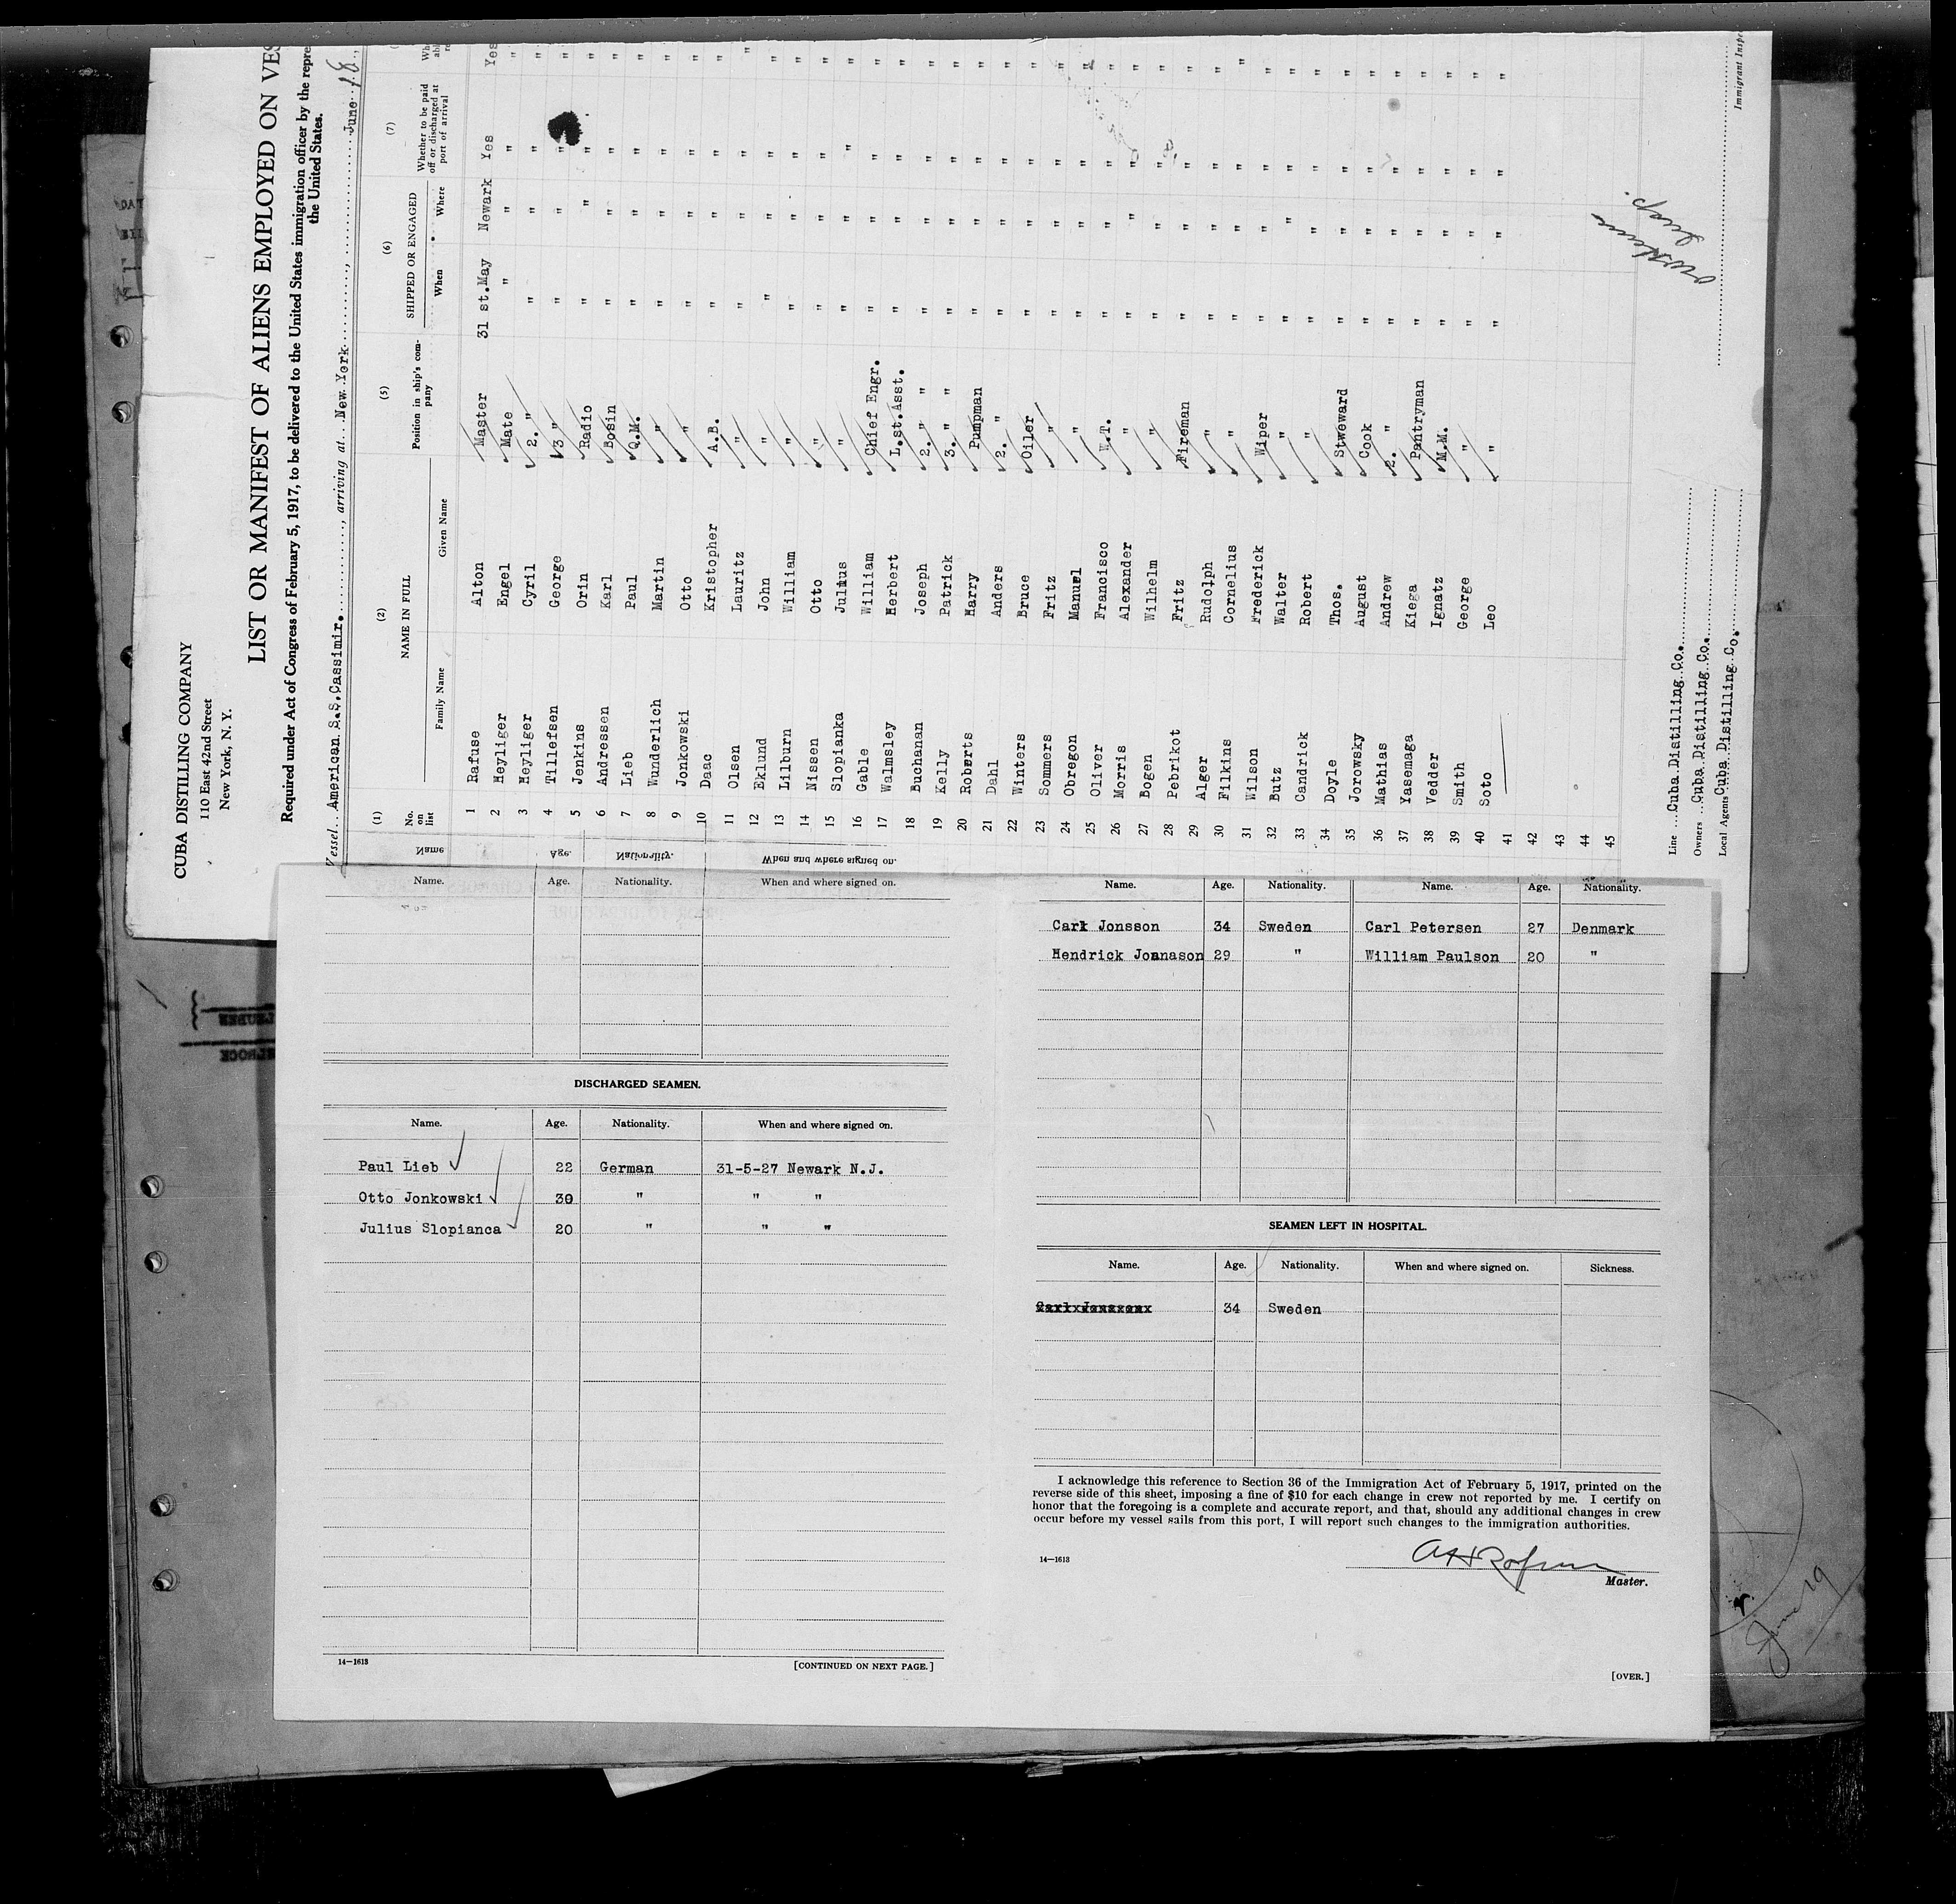 CUBA DISTILLING COMPANY
110 East 42nd Street
New York, N. Y.
LIST OR MANIFEST OF ALIENS EMPLOYED ON VES
Required under Act of Congress of February 5, 1917, to be delivered to the United States immigration officer by the repre
the United States.
Vessel American S.S. Cassimir., arriving at New York, June 18,
(1) (2) (5) (6) (7)
No. on list NAME IN FULL Position in ship's company SHIPPED OR ENGAGED Whether to be paid off or discharged at port of arrival
Family Name Given Name When Where
1 Rafuse Alton Master 31 st.May Newark Yes Yes
2 Heyliger Engel Mate " " " "
3 Heyliger Cyril 2. " " " " "
4 Tillefsen George 3 " " " " "
5 Jenkins Orin Radio " " " "
6 Andressen Karl Bosin " " " "
7 Lieb Paul Q.M. " " " "
8 Wunderlich Martin " " " " "
9 Jonkowski Otto " " " " "
10 Daac Kristopher A.B. " " " "
11 Olsen Lauritz " " " " "
12 Eklund John " " " " "
13 Lilburn William " " " " "
14 Nissen Otto " " " " "
15 Slopianka Julius " " " " "
16 Gable William Chief Engr. " " " "
17 Walmsley Herbert L.st.Asst. " " " "
18 Buchanan Joseph 2. " " " " " "
19 Kelly Patrick 3. " " " " " "
20 Roberts Harry Pumpman " " " "
21 Dahl Anders 2. " " " " "
22 Winters Bruce Oiler " " " "
23 Sommers Fritz " " " " "
24 Obregon Manuel " " " " "
25 Oliver Francisco W.T. " " " "
26 Morris Alexander " " " " "
27 Bogen Wilhelm " " " " "
28 Pebrikot Fritz Fireman " " " "
29 Alger Rudolph " " " " "
30 Filkins Cornelius " " " " "
31 Wilson Frederick Wiper " " " "
32 Butz Walter " " " " "
33 Candrick Robert " " " " "
34 Doyle Thos. Stweward " " " "
35 Jorowsky August Cook " " " "
36 Mathias Andrew 2. " " " " "
37 Yasemaga Kiega Pantryman " " " "
38 Vedder Ignatz M.M. " " " "
39 Smith George " " " " "
40 Soto Leo " " " " "
41
42
43
44
45
Line Cuba Distilling Co.
Owners Cuba Distilling Co.
Local Agents Cuba Distilling Co.
Immigrant Inspe
Name. Age. Nationality. When and where signed on.
Name. Age. Nationality. When and where signed on.
DISCHARGED SEAMEN.
Name. Age. Nationality. When and where signed on.
Paul Lieb 22 German 31-5-27 Newark N.J.
Otto Jonkowski 30 " " "
Julius Slopianca 20 " " "
14—1613
[CONTINUED ON NEXT PAGE.]
Name. Age. Nationality. Name. Age. Nationality.
Carl Jonsson 34 Sweden Carl Petersen 27 Denmark
Hendrick Jonnason 29 " William Paulson 20 "
SEAMEN LEFT IN HOSPITAL.
Name. Age. Nationality. When and where signed on. Sickness.
34 Sweden
I acknowledge this reference to Section 36 of the Immigration Act of February 5, 1917, printed on the
reverse side of this sheet, imposing a fine of $10 for each change in crew not reported by me. I certify on
honor that the foregoing is a complete and accurate report, and that, should any additional changes in crew
occur before my vessel sails from this port, I will report such changes to the immigration authorities.
14—1613
Master.
[OVER.]
June 19